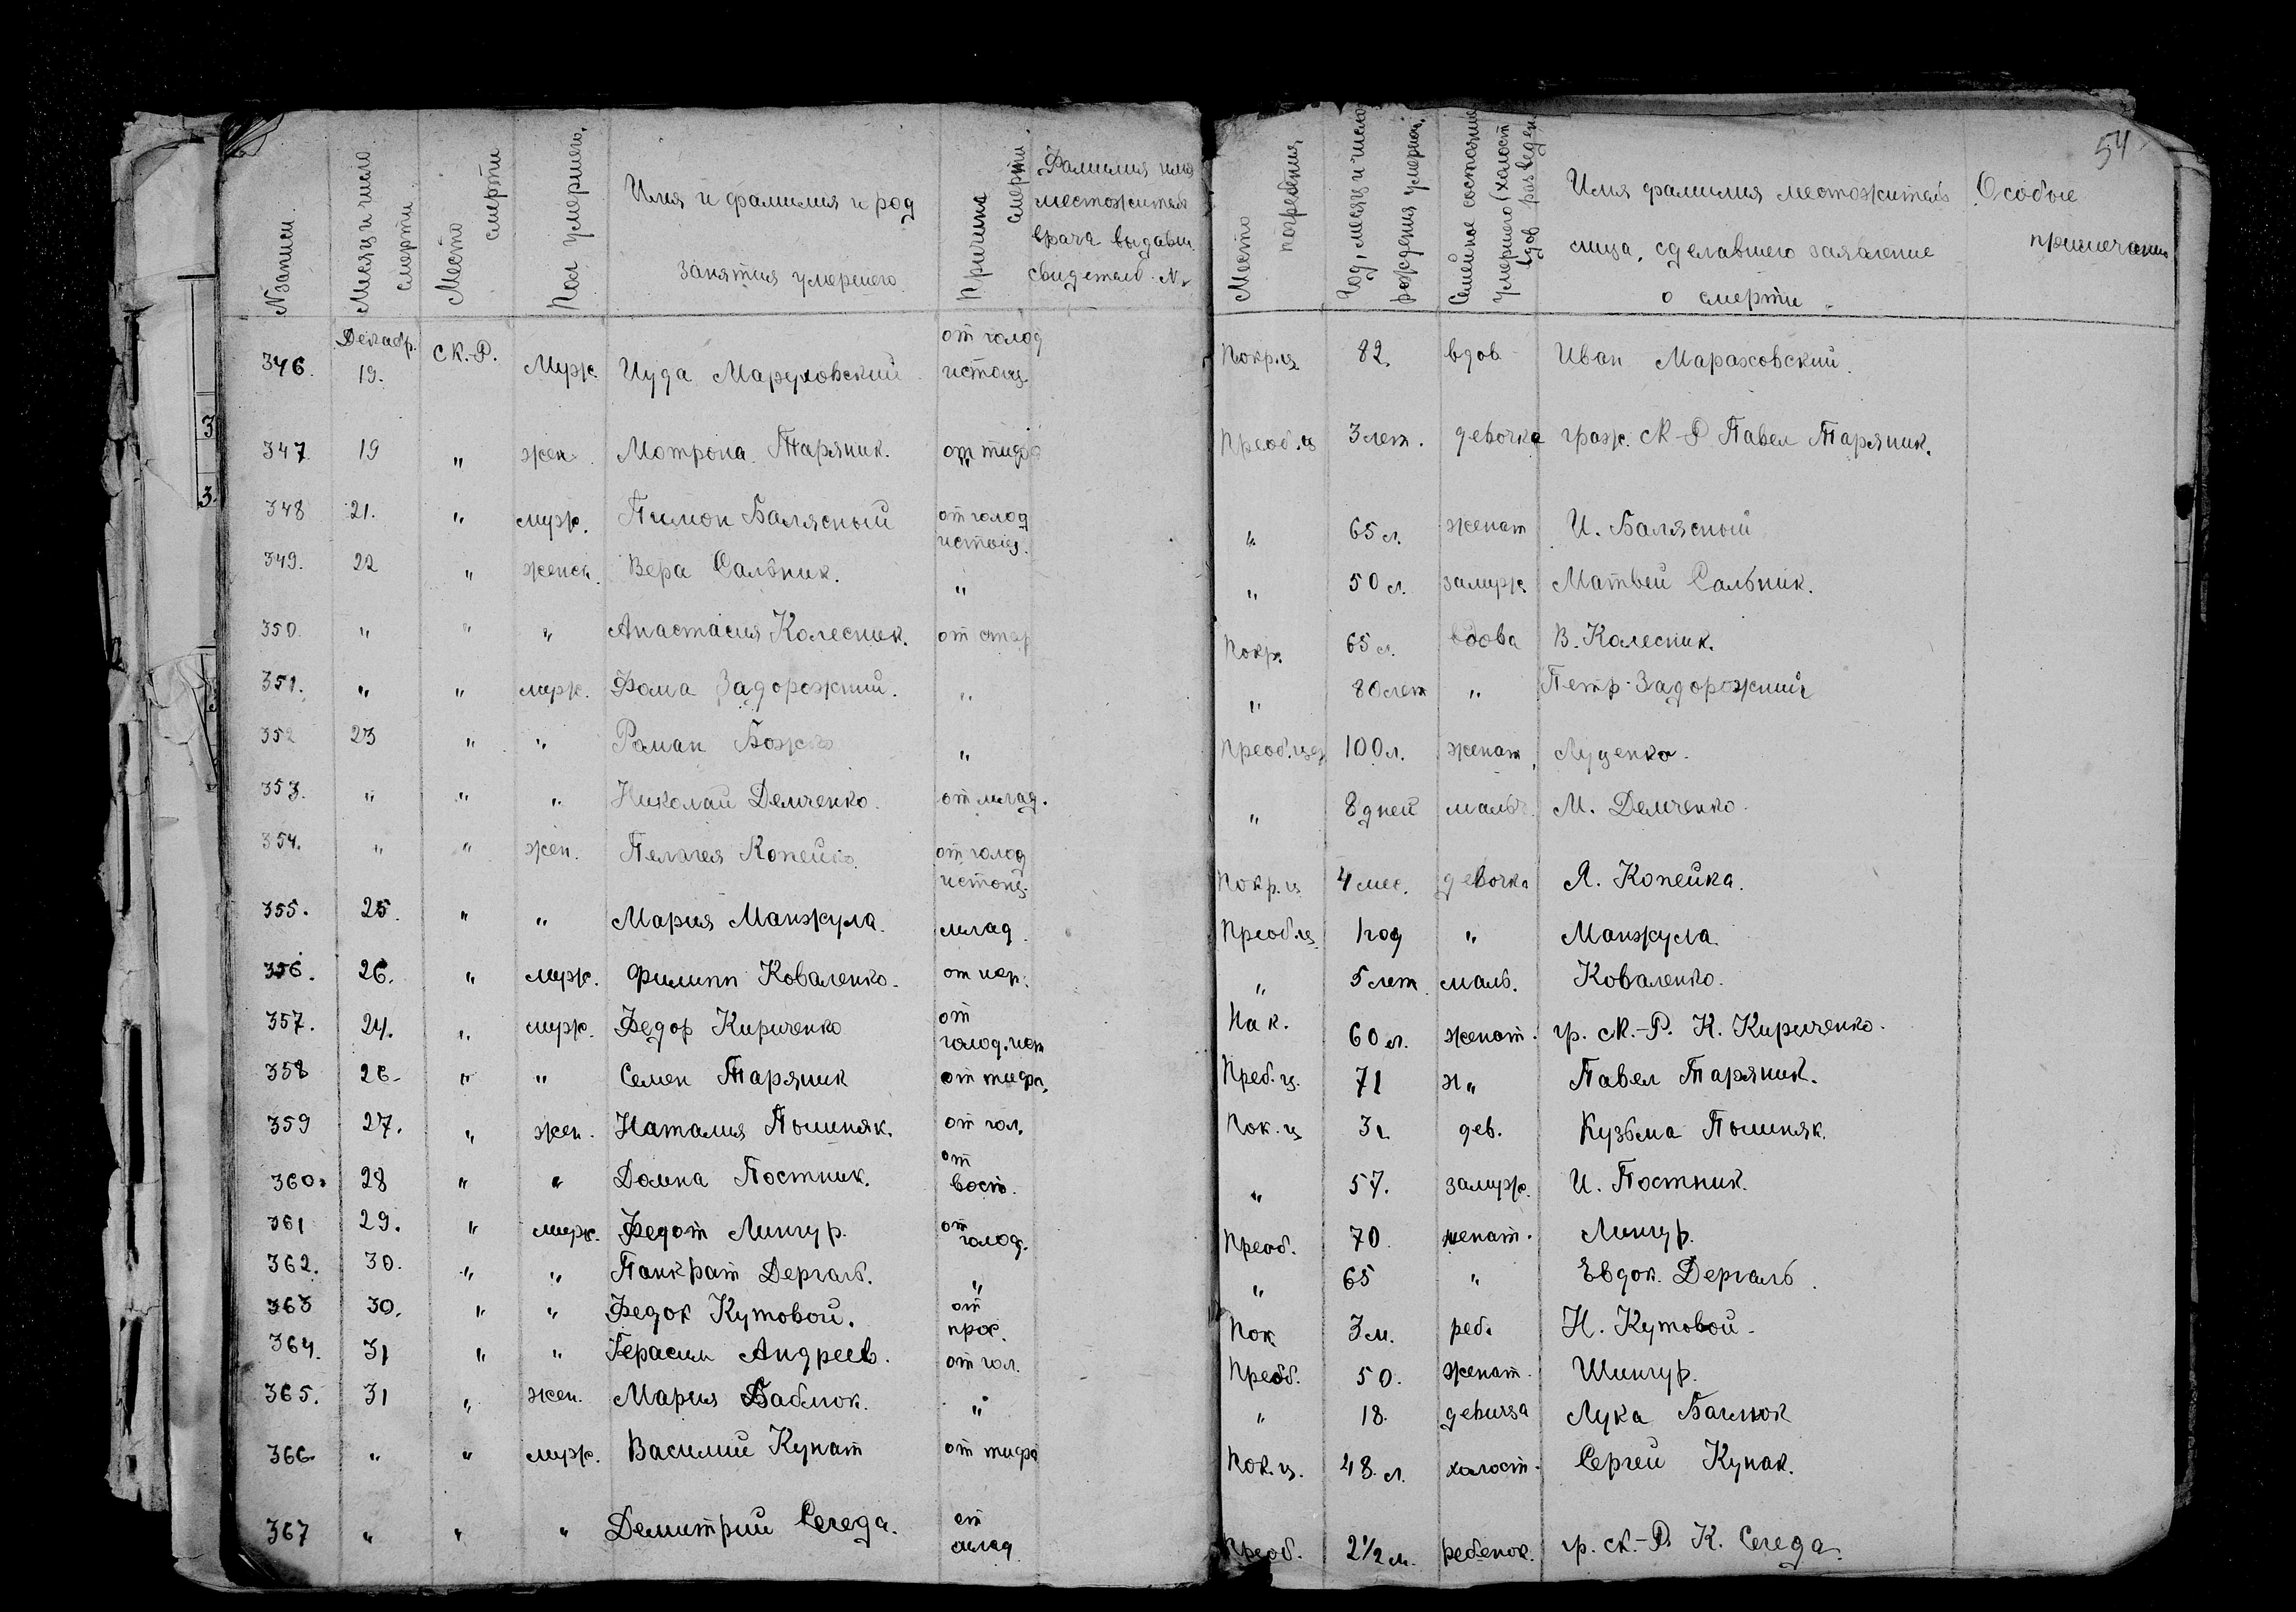 54
№ записи
Месяц и число смерти
Место смерти
Пол умершего.
Имя и фамилия и род занятия умершего
Причина смерти
Фамилия имя местожитель врача выдавш. свидетельв. №
Место погребения
Год, месяц и число рождения умершего.
Семейное состояние умершего (холост вдов разведен
Имя фамилия местожитель лица, сделавшего заявление о смерти.
Особые примечания
346. Декабр. 19. СК.-Р. Муж. Иуда Марховский от голод истощ. Покр.ц 82 вдов Иван Мараховский.
347. 19 " жен. Мотрона Таряник. от тифа Преоб.ц 3 лет. девочка граж. СК-Р Павел Таряник.
348 21. " муж. Пимон Балясный от голод истощ. " 65 л. женат И. Балясный
349. 22 " женск. Вера Сальник. " " 50 л. замуж Матвей Сальник.
350. " " " Анастасия Колесник. от стар Покр. 65 л. вдова В. Колесник.
351. " " муж. Фома Задорожний. " " 80 лет " Петр Задорожний
352 23 " " Роман " Преоб.цер 100 л. женат Луценко.
353. " " " Николай Демченко. от млад. " 8 дней мальч. М. Демченко.
354. " " жен. Пелагея Копейка от голод истощ. Покр.ц 4 мес. девочка Я. Копейка.
355. 25. " " Мария Манжула. млад. Преоб.ц. 1 год " Манжула.
356. 26. " муж. Филипп Коваленко. " 5 лет маль. Коваленко.
357. 24. " муж. Федор Кириченко от голод. ист На к. 60 л. женат. гр. СК.-Р. К. Кириченко.
358 26. " " Семен Таряник от тифа. Преб.ц. 71 ж" Павел Таряник.
359 27. " жен. Наталия от гол. Пок.ц 3 г. дев. Кузьма
360. 28 " " Домна Постник. от восп. " 57. замуж. И. Постник.
361 29. " муж. Федот Лингур. от голод. Преоб. 70. женат. Лингур.
362. 30. " " Панкрат Дергаль. " " 65 " Евдок. Дергаль.
363 30. " " Федок Кутовой. от прос. Пок 3 м. реб. Н. Кутовой.
364. 31 " " Герасим Андреев. от гол. Преоб. 50. женат. Шингур.
365. 31 " жен. Мария Баблюк. " " 18. девица Лука Баглюк
366. " " муж. Василий Кунат от тифа Пок.ц. 48. л. холост. Сергей Кунак.
367 " " " Демитрий Середа. от млад. Преоб. 2 1/2 м. ребенок. гр. СК.-Р. К. Середа.